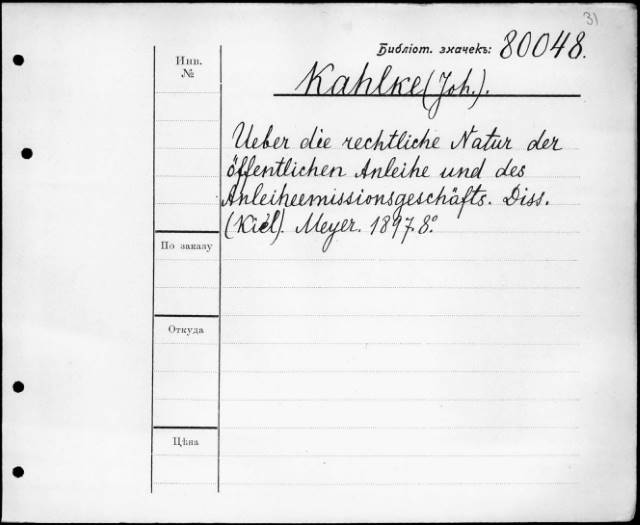 31
Библіот. значекъ: 80048.
Инв.
№
Kahlke (Joh.).
Ueber die rechtliche Natur der
öffentlichen Anleihe und des
Anleiheemissionsgeschäfts. Diss.
(Kiel). Meyer. 1897. 8°.
По заказу
Откуда
Цѣна